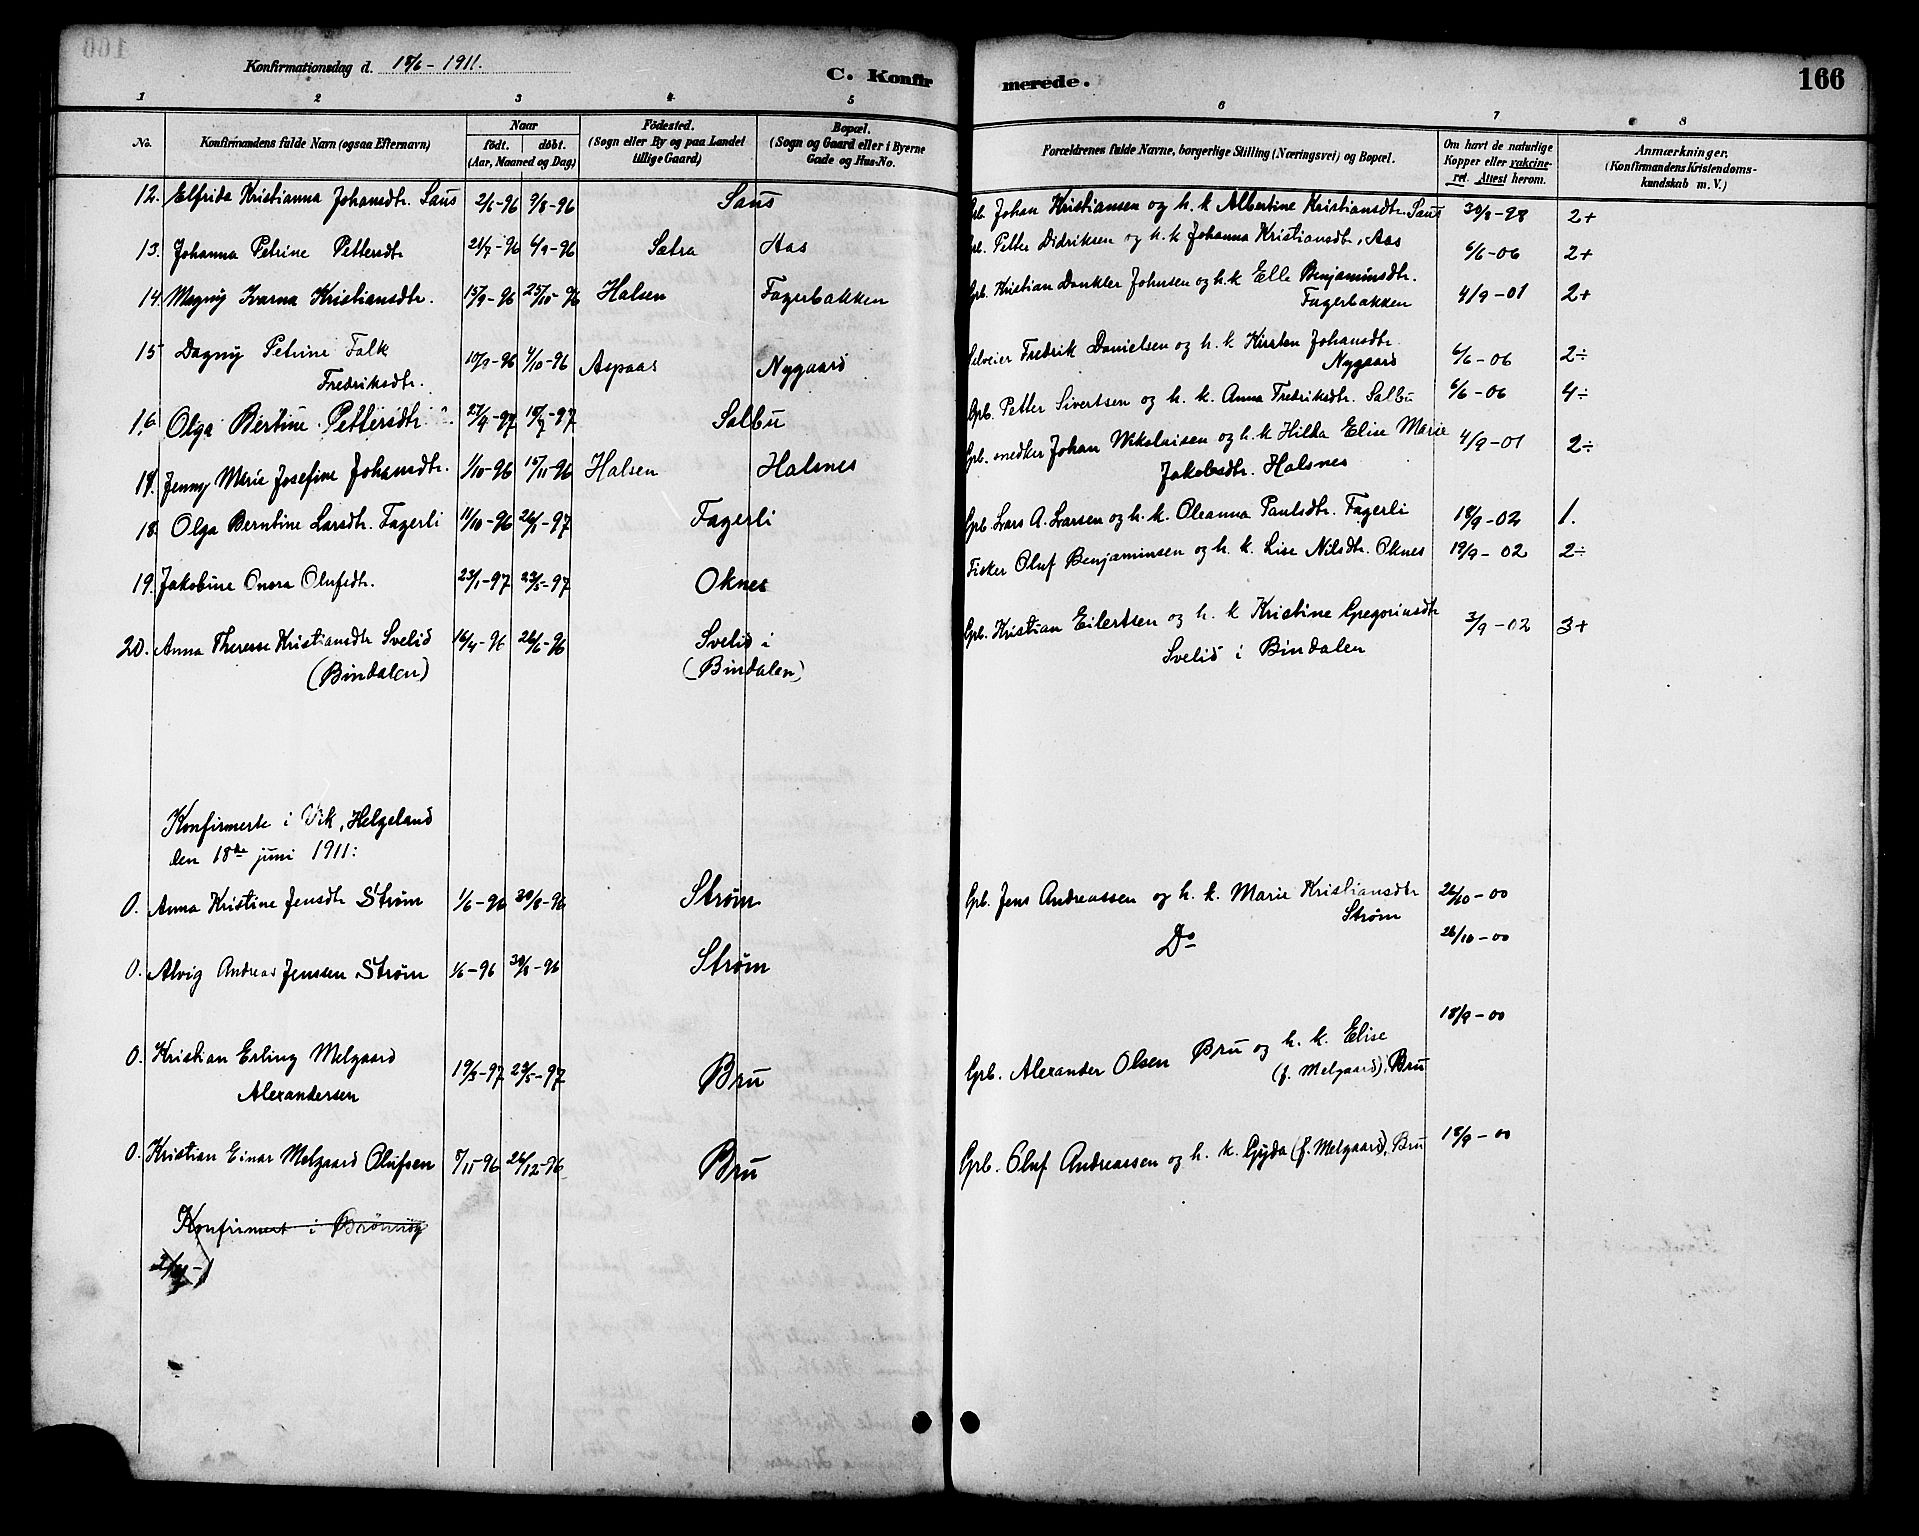 Konfirmationsdag d. 18/6 - 1911.
C. Konfirmerede.
166
1 2 3 4 5 6 7 8
No.
Konfirmandens fulde Navn (ogsaa Efternavn)
Naar
födt. döbt.
(Aar, Maaned og Dag)
Födested.
(Sogn eller By og paa Landet
tillige Gaard)
Bopæl.
(Sogn og Gaard eller i Byerne
Gade og Hus-No.
Forældrenes fulde Navne, borgerlige Stilling (Næringsvei) og Bopæl.
Om havt de naturlige
Kopper eller vakcine-
ret. Attest herom.
Anmærkninger.
(Konfirmandens Kristendoms-
kundskab m. V.)
12. Elfrida Kristianna Johansdtr. Saus 2/6-96 9/8-96 Saus Grb. Johan Kristiansen og h. k Albertine Kristiansdtr. Saus 30/8-98 2+
13. Johanna Petrine Pettersdtr 21/7-96 6/9-96 Sætra Aas Grb. Petter Didriksen og h. k Johanna Kristiansdtr, Aas 6/6-06 2+
14 Magny Ivarna Kristiansdtr. 15/9-96 25/10-96 Halsen Fagerbakken Grb. Kristian Dankler Johnsen og h. k Elle Benjaminsdtr.
Fagerbakken 4/9-01 2+
15 Dagny Petrine Falk
Fredriksdtr. 10/9-96 4/10-96 Aspaas Nygaard Selveier Fredrik Danielsen og h. k Kirsten Johansdtr.
Nygaard 6/6-06 2÷
16 Olga Bertine Pettersdtr 27/4-97 18/7-97 Salbu Grb. Petter Sivertsen og h. k. Anna Fredriksdtr. Salbu 6/6-06 4÷
17. Jenny Marie Josefine Johansdtr. 1/10-96 15/11-96 Halsen Halsnes Grb. snedker Johan Nikolaisen og h. k Hilda Elise Marie
Jakobsdtr. Halsnes 4/9-01 2÷
18. Olga Berntine Larsdtr. Fagerli 11/10-96 26/1-97 Fagerli Grb Lars A. Larsen og h. k. Oleanna Paulsdtr. Fagerli 18/9-02 1.
19. Jakobine Onora Olufsdtr. 23/1-97 23/5-97 Oknes Fisker Oluf Benjaminsen og h. k. Lise Nilsdtr. Oknes 19/9-02 2÷
20. Anna Therese Kristiansdtr Svelid
(Bindalen) 16/4-96 26/6-96 Svelid i
(Bindalen) Grb. Kristian Eilertsen og h. k Kristine Gregoriusdtr
Svelid i Bindalen 3/9-02 3+
Konfirmerte i Vik, Helgeland
den 18de juni 1911:
0. Anna Kristine Jensdtr Strøm 1/6-96 30/8-96 Strøm Grb. Jens Andreassen og h. k. Marie Kristiansdtr
Strøm 26/10-00
0. Alvig Andreas Jenssen Strøm 1/6-96 30/8-96 Strøm Do 26/10-00
0. Kristian Erling Melgaard
Alexandersen 19/3-97 23/5-97 Bru Grb. Alexander Olsen Bru og h. k. Elise
(f. Melgaard), Bru 18/9-00
0. Kristian Einar Melgaard Olufsen 8/11-96 26/12-96 Bru Grb. Oluf Andreassen og h. k. Gyda (f. Melgaard), Bru 18/9-00
Konfirmert i Brönnöy